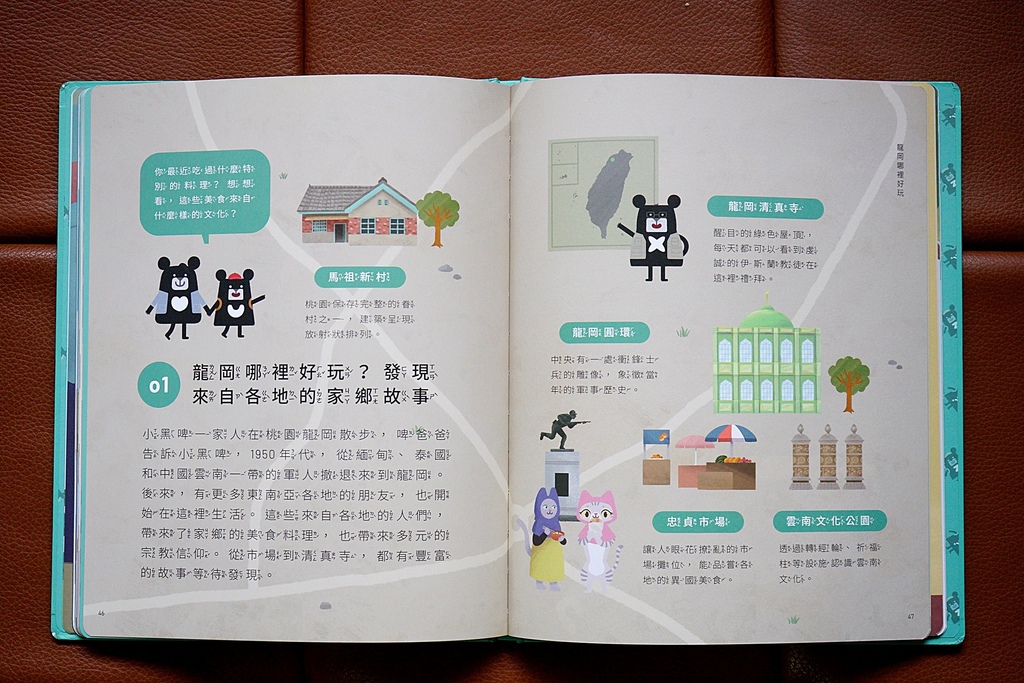 你最近吃過什麼特
別的料理？想想
看，這些美食來自
什麼樣的文化？
馬祖新村
桃園保存完整的眷
村之一，建築呈現
放射狀排列。
01
龍岡哪裡好玩？發現
來自各地的家鄉故事
小黑啤一家人在桃園龍岡散步，啤爸爸
告訴小黑啤，1950年代，從緬甸、泰國
和中國雲南一帶的軍人撤退來到龍岡。
後來，有更多東南亞各地的朋友，也開
始在這裡生活。這些來自各地的人們，
帶來了家鄉的美食料理，也帶來多元的
宗教信仰。從市場到清真寺，都有豐富
的故事等待發現。
46
龍岡哪裡好玩
龍岡清真寺
醒目的綠色屋頂，
每天都可以看到虔
誠的伊斯蘭教徒在
這裡禮拜。
龍岡圓環
中央有一處衝鋒士
兵的雕像，象徵當
年的軍事歷史。
忠貞市場
讓人眼花撩亂的市
場攤位，能品嘗各
地的異國美食。
雲南文化公園
透過轉經輪、祈福
柱等設施認識雲南
文化。
47